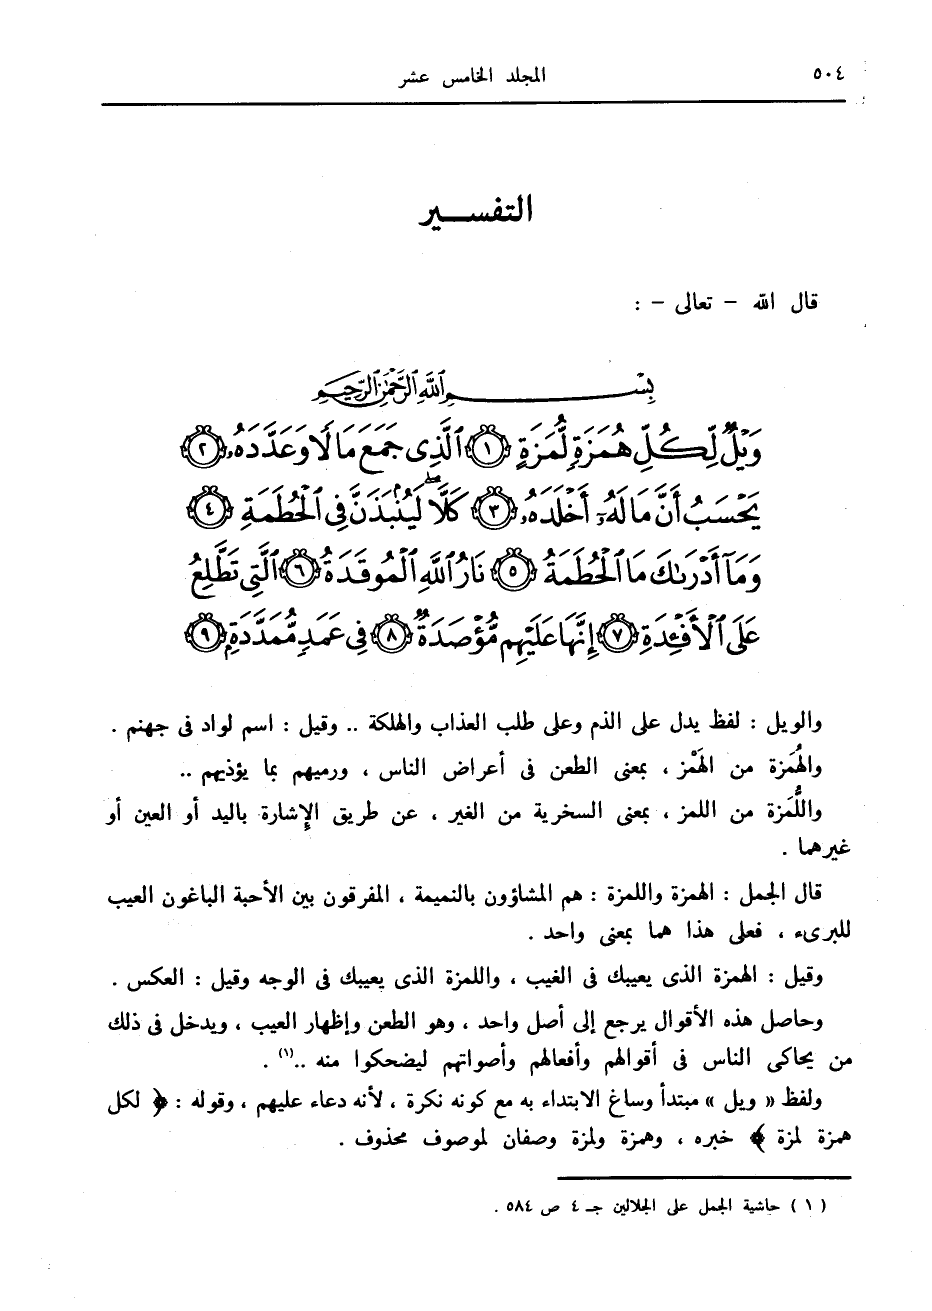 ٥٠٤
المجلد الخامس عشر
التفسير
قال الله – تعالى – :
بِسْمِ ٱللَّهِ ٱلرَّحْمَٰنِ ٱلرَّحِيمِ
وَيْلٌ لِّكُلِّ هُمَزَةٍ لُّمَزَةٍ ۝١ ٱلَّذِى جَمَعَ مَالًا وَعَدَّدَهُۥ ۝٢
يَحْسَبُ أَنَّ مَالَهُۥٓ أَخْلَدَهُۥ ۝٣ كَلَّا ۖ لَيُنۢبَذَنَّ فِى ٱلْحُطَمَةِ ۝٤
وَمَآ أَدْرَىٰكَ مَا ٱلْحُطَمَةُ ۝٥ نَارُ ٱللَّهِ ٱلْمُوقَدَةُ ۝٦ ٱلَّتِى تَطَّلِعُ
عَلَى ٱلْأَفْـِٔدَةِ ۝٧ إِنَّهَا عَلَيْهِم مُّؤْصَدَةٌ ۝٨ فِى عَمَدٍ مُّمَدَّدَةٍۭ ۝٩
والويل : لفظ يدل على الذم وعلى طلب العذاب والهلكة .. وقيل : اسم لواد فى جهنم .
والهُمَزة من الهَمْز ، بمعنى الطعن فى أعراض الناس ، ورميهم بما يؤذيهم ..
واللُّمَزة من اللمز ، بمعنى السخرية من الغير ، عن طريق الإِشارة باليد أو العين أو
غيرهما .
قال الجمل : الهمزة واللمزة : هم المشاؤون بالنميمة ، المفرقون بين الأحبة الباغون العيب
للبرىء ، فعلى هذا هما بمعنى واحد .
وقيل : الهمزة الذى يعيبك فى الغيب ، واللمزة الذى يعيبك فى الوجه وقيل : العكس .
وحاصل هذه الأقوال يرجع إلى أصل واحد ، وهو الطعن وإظهار العيب ، ويدخل فى ذلك
من يحاكى الناس فى أقوالهم وأفعالهم وأصواتهم ليضحكوا منه ..(١) .
ولفظ « ويل » مبتدأ وساغ الابتداء به مع كونه نكرة ، لأنه دعاء عليهم ، وقوله : ﴿ لكل
همزة لمزة ﴾ خبره ، وهمزة ولمزة وصفان لموصوف محذوف .
( ١ ) حاشية الجمل على الجلالين جـ ٤ ص ٥٨٤ .